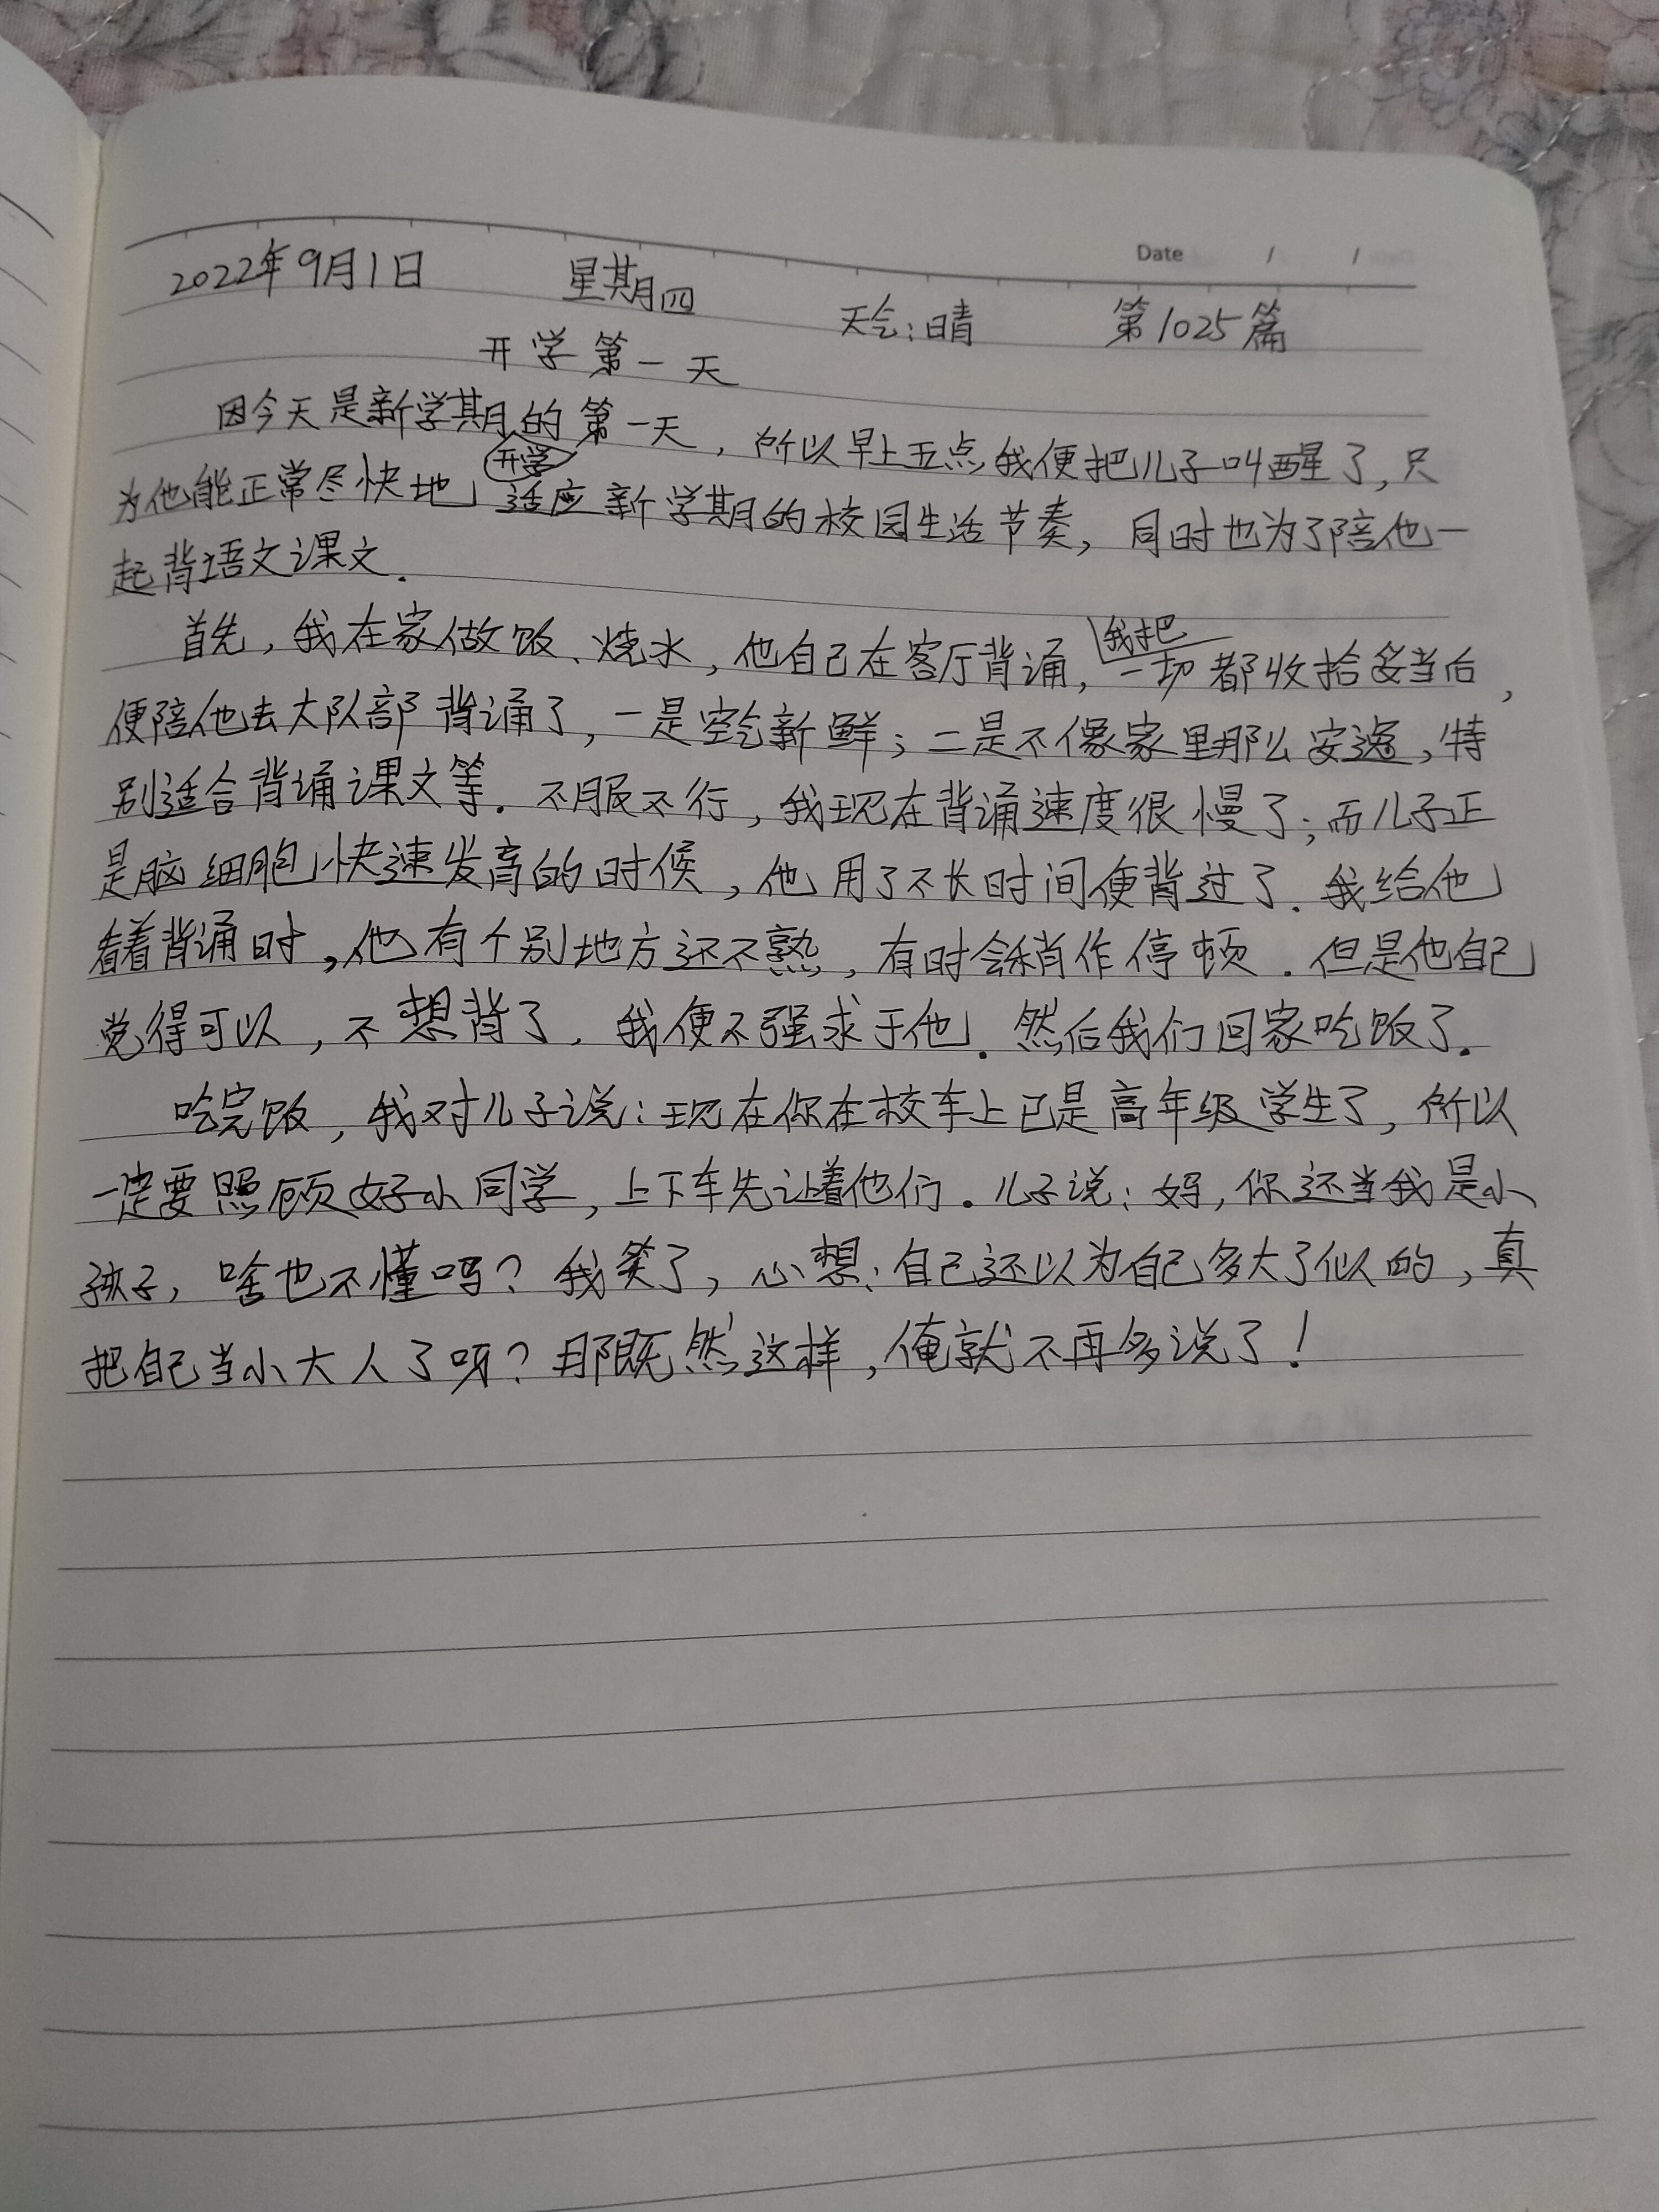 Date / /
2022年9月1日 星期四 天气:晴 第1025篇
开学第一天
因今天是新学期的第一天,所以早上五点,我便把儿子叫醒了,只
开学
为他能正常尽快地适应新学期的校园生活节奏,同时也为了陪他一
起背语文课文.
我把
首先,我在家做饭、烧水,他自己在客厅背诵,一切都收拾妥当后,
便陪他去大队部背诵了,一是空气新鲜;二是不像家里那么安逸,特
别适合背诵课文等.不服不行,我现在背诵速度很慢了;而儿子正
是脑细胞快速发育的时候,他用了不长时间便背过了.我给他
看着背诵时,他有个别地方还不熟,有时会稍作停顿.但是他自己
觉得可以,不想背了.我便不强求于他.然后我们回家吃饭了.
吃完饭,我对儿子说:现在你在校车上已是高年级学生了,所以
一定要照顾好小同学,上下车先让着他们.儿子说:妈,你还当我是小
孩子,啥也不懂吗?我笑了,心想:自己还以为自己多大了似的,真
把自己当小大人了呀?那既然这样,俺就不再多说了!